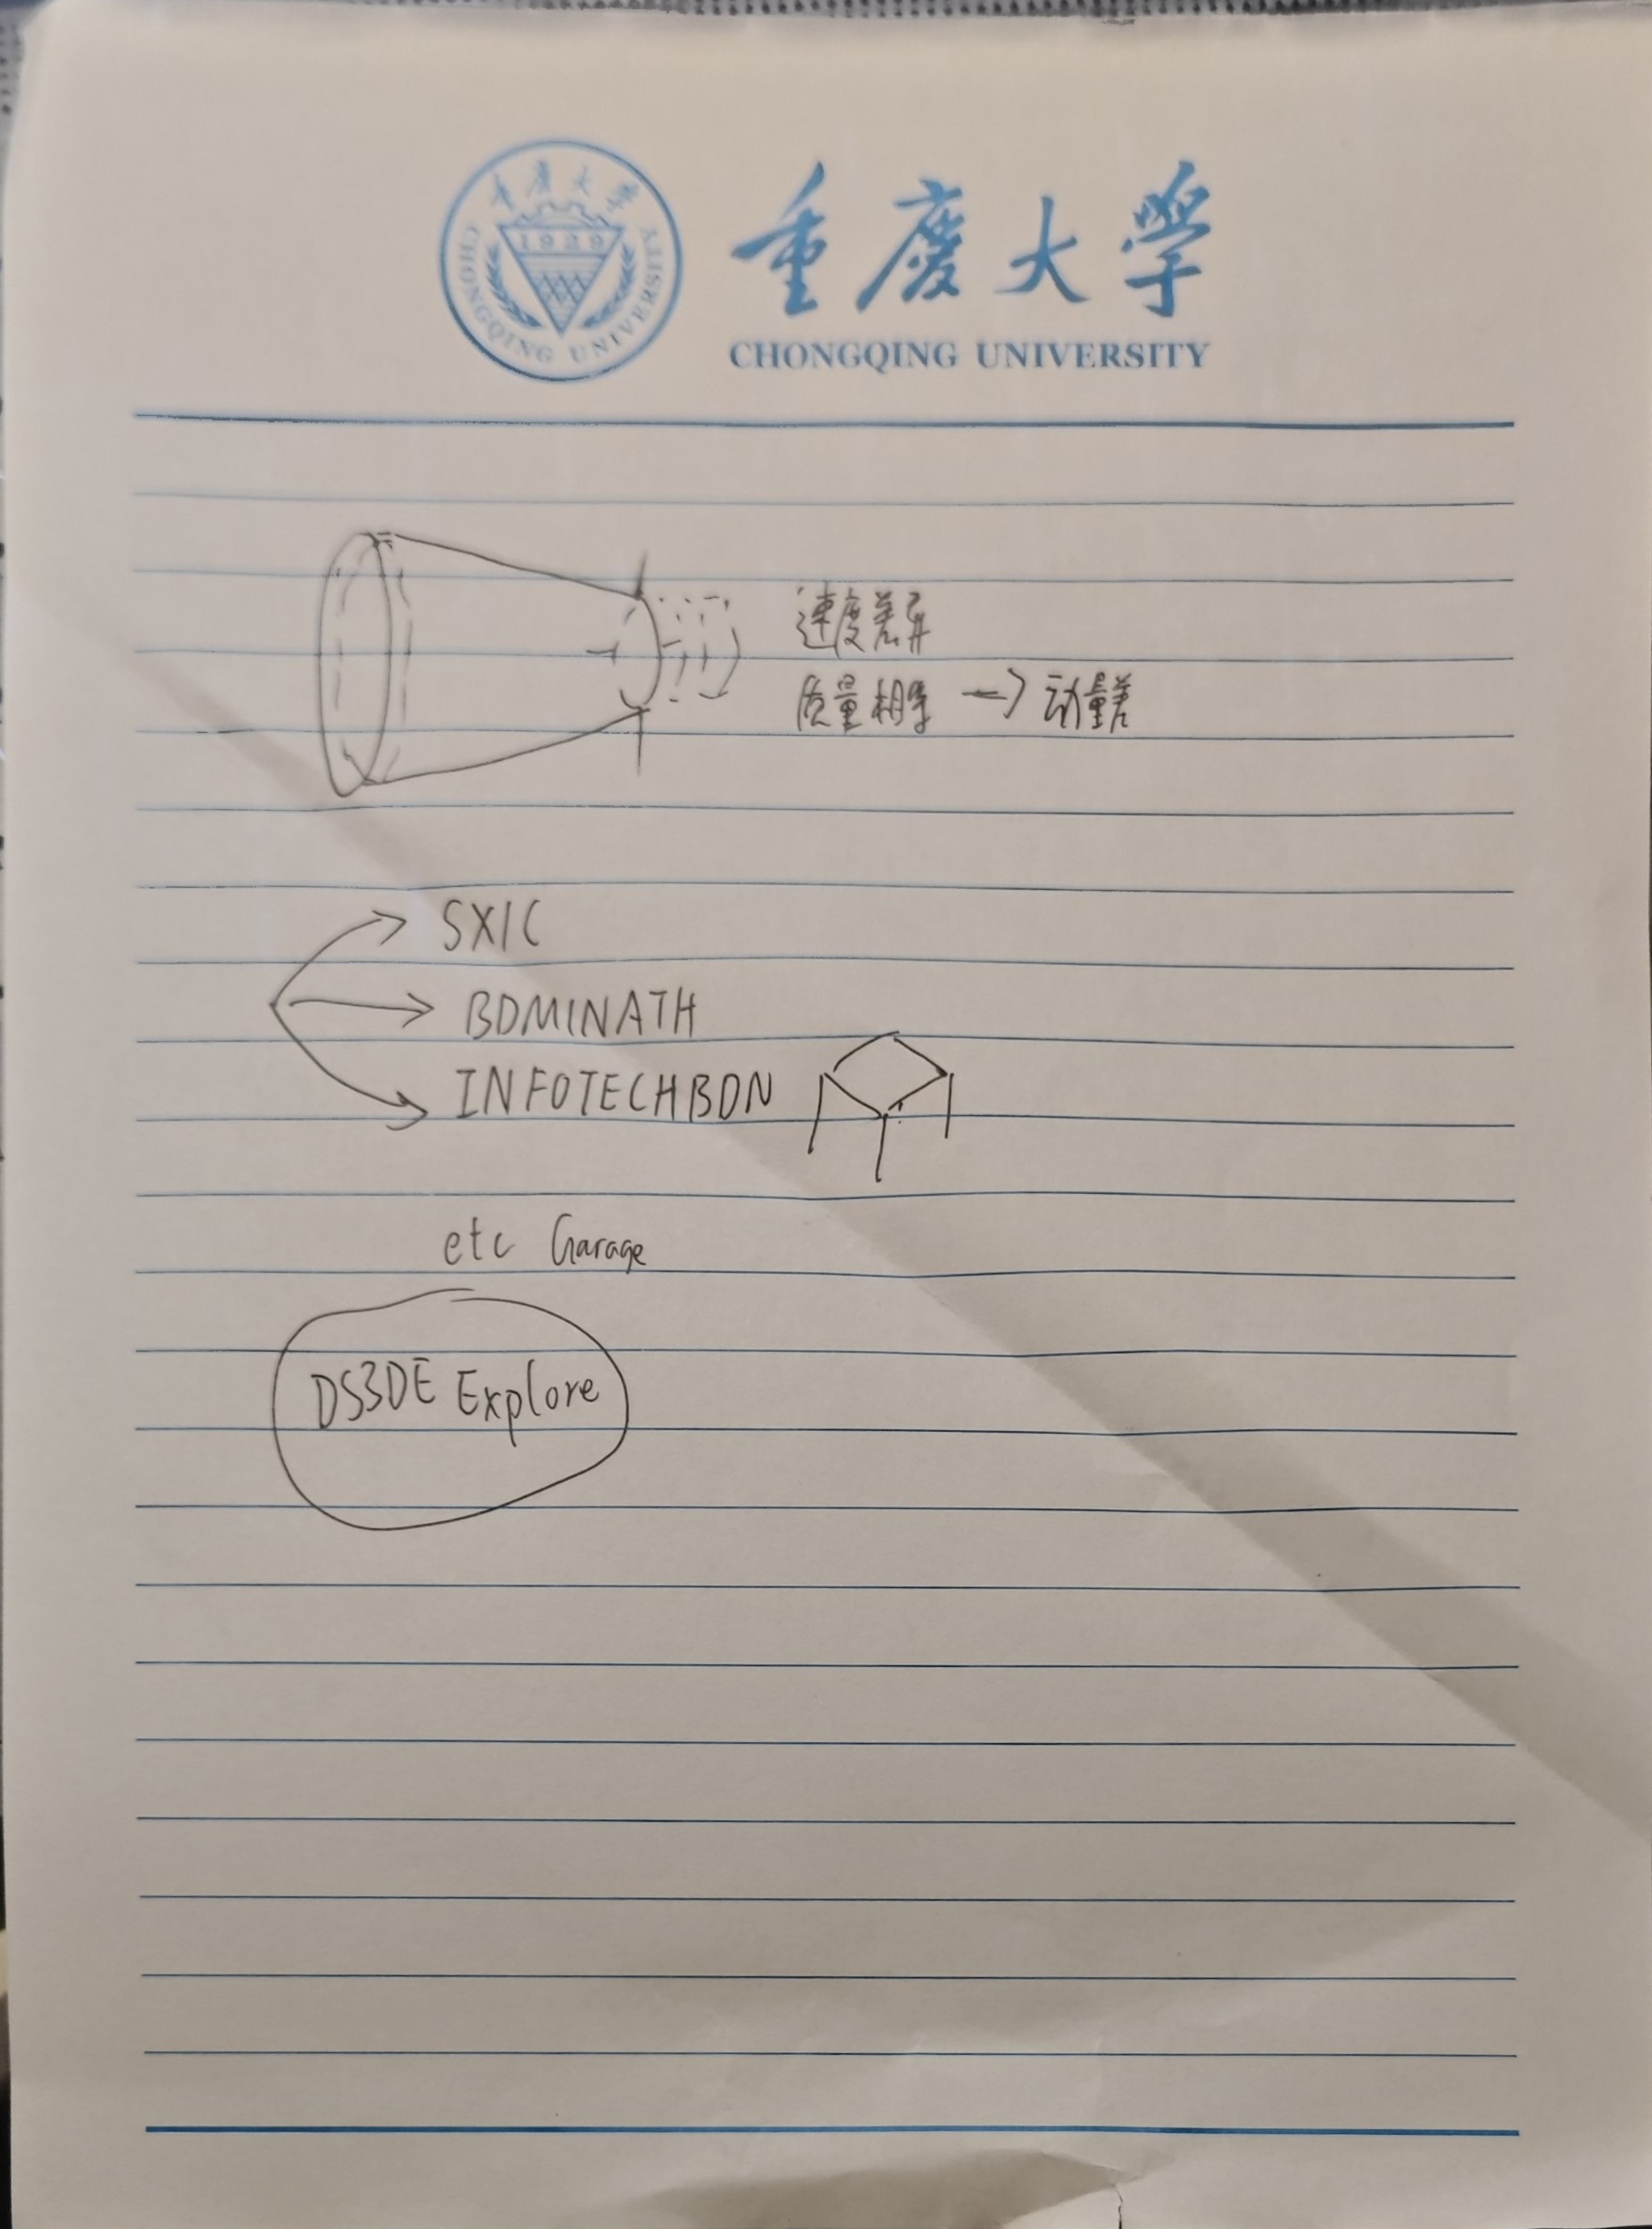 重慶大學
CHONGQING UNIVERSITY
1929
重慶大學
CHONGQING UNIVERSITY
速度差异
质量相等 → 动量差
SXIC
BDMINATH
INFOTECHBDN
etc Garage
DS3DE Explore